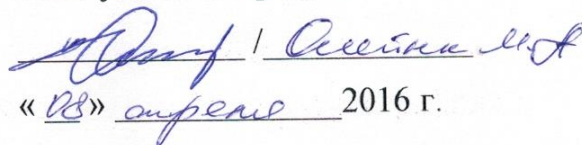 / Олейник М.А
« 08 » апреля 2016 г.